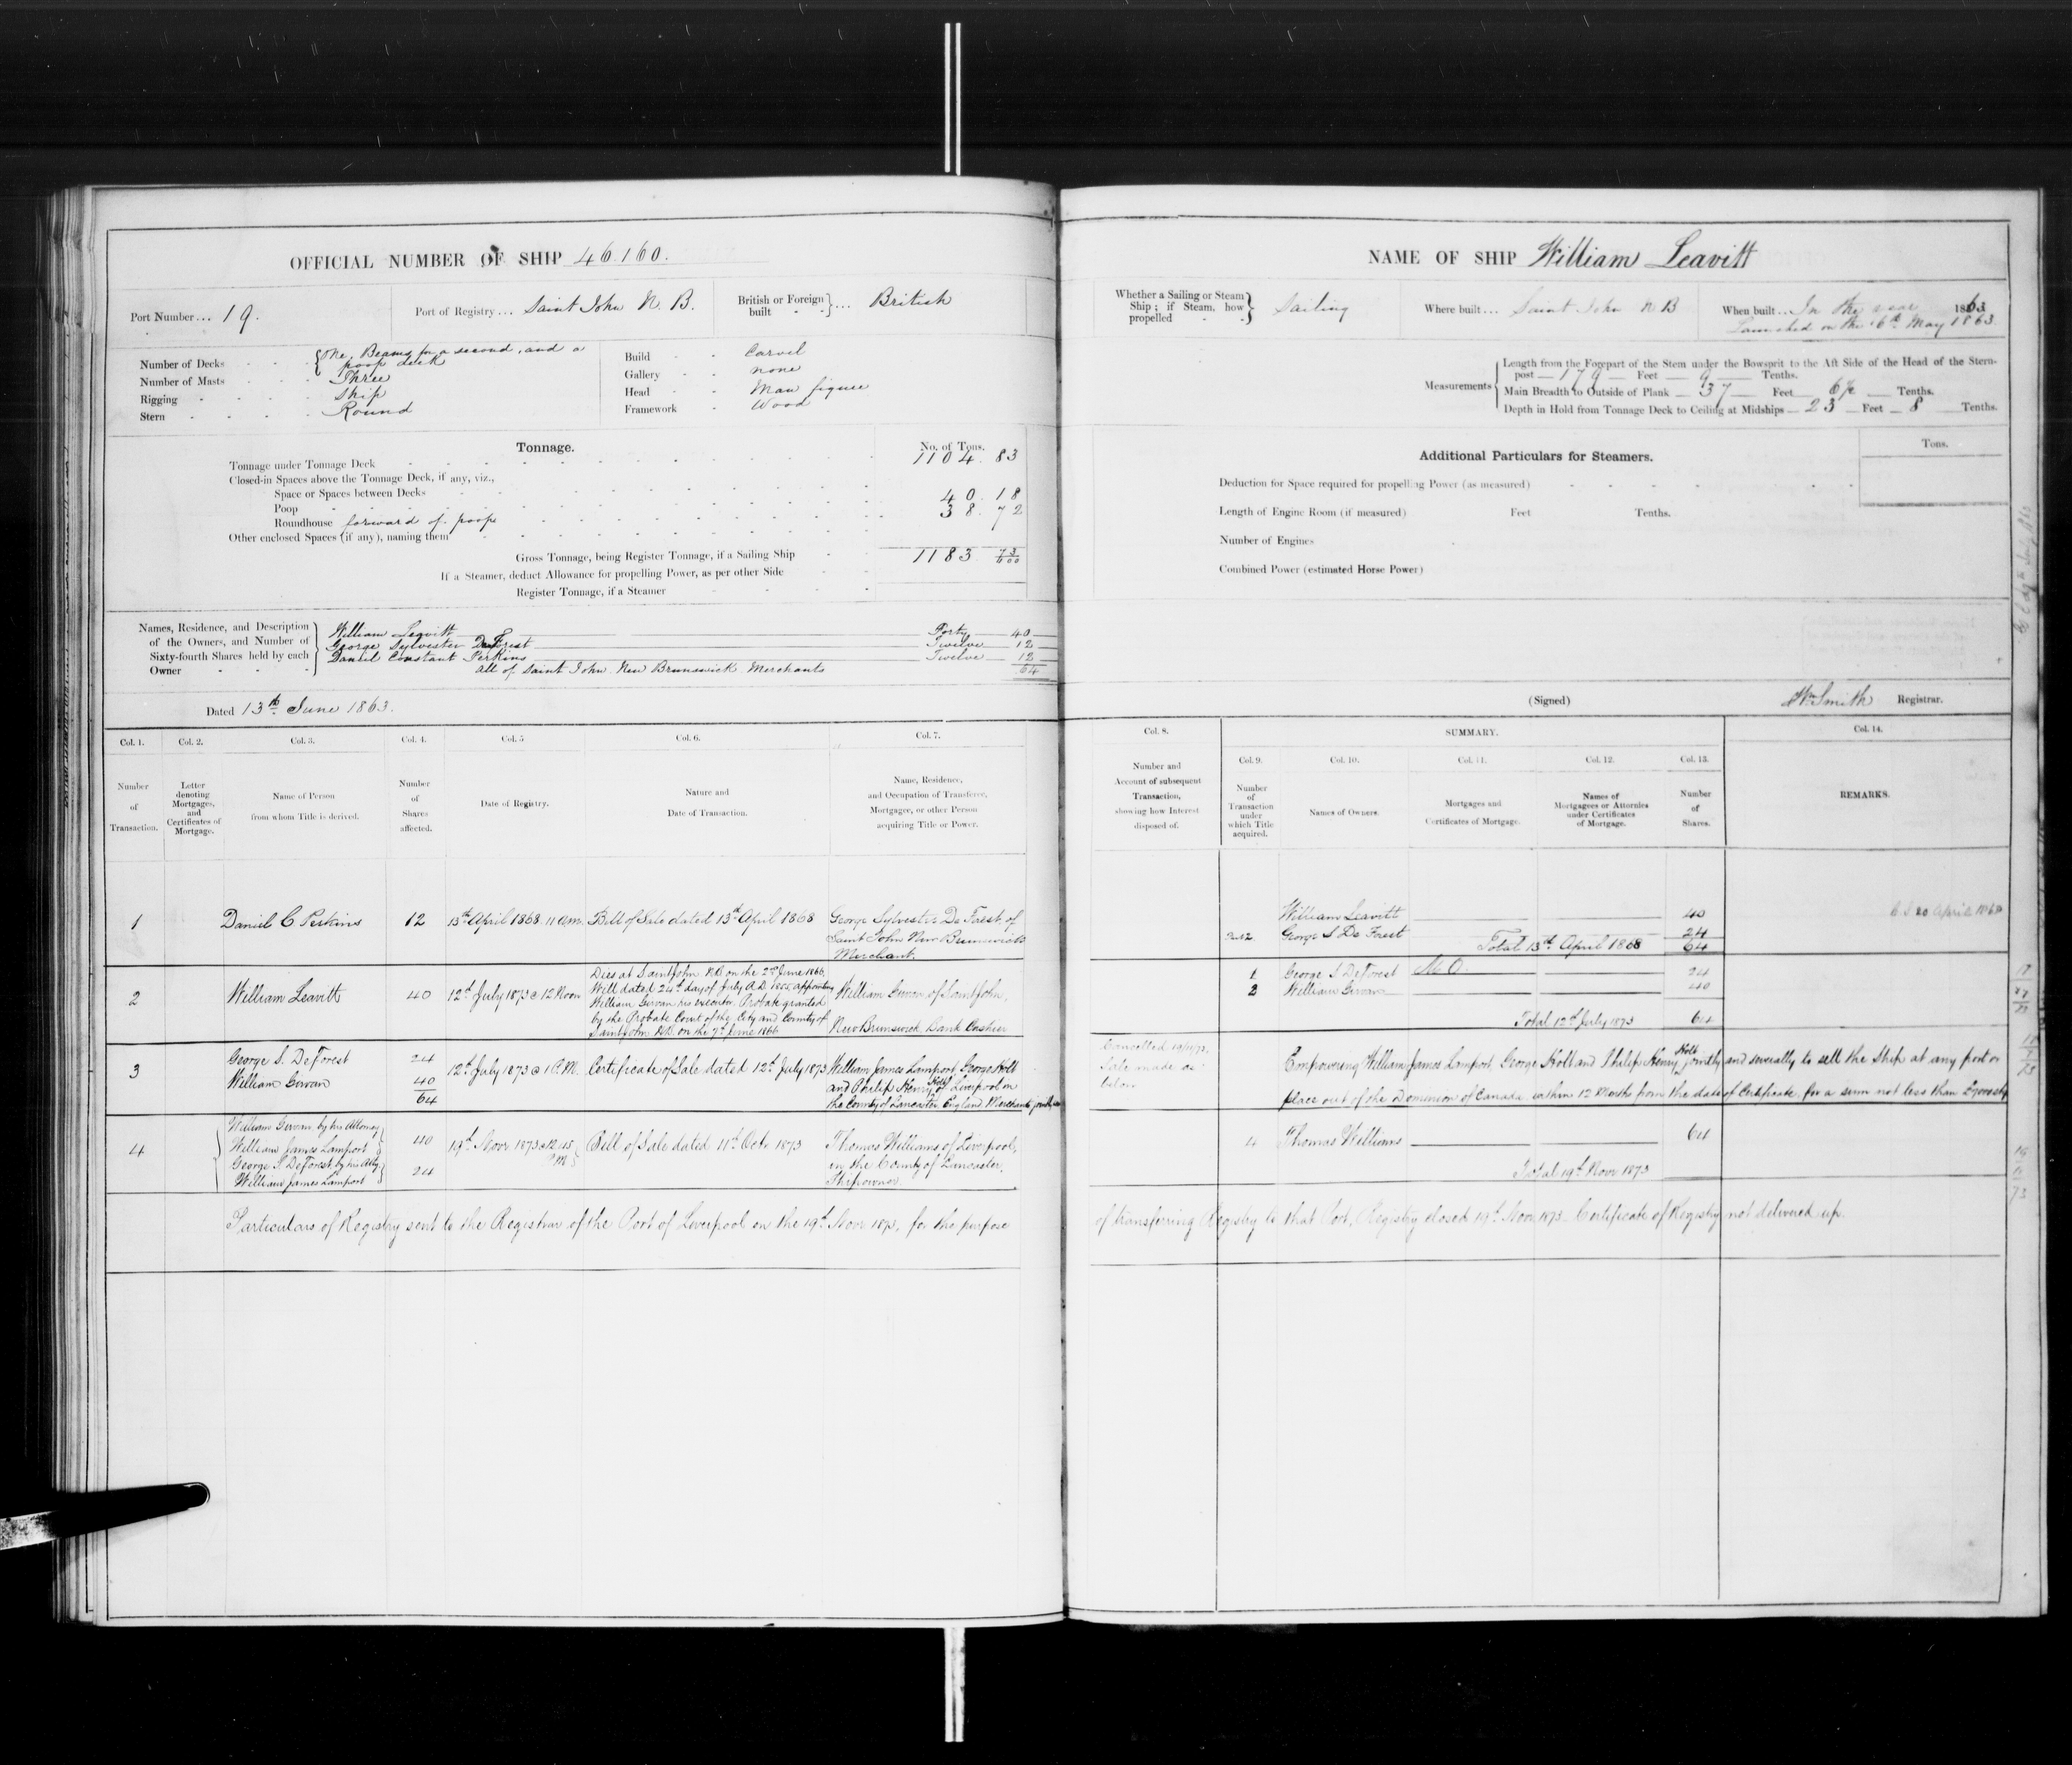 OFFICIAL NUMBER OF SHIP 46.160.
Port Number ... 19.
Port of Registry ... Saint John N. B.
British or Foreign built } ... British
Number of Decks { One, Beams for a second, and a
poop deck
Number of Masts Three
Rigging Ship
Stern Round
Build Carvel
Gallery none
Head Man figure
Framework Wood
Tonnage.
No. of Tons.
Tonnage under Tonnage Deck 1104. 83
Closed-in Spaces above the Tonnage Deck, if any, viz.,
Space or Spaces between Decks
Poop 40. 18
Roundhouse forward of poop 38. 72
Other enclosed Spaces (if any), naming them
Gross Tonnage, being Register Tonnage, if a Sailing Ship 1183 73/100
If a Steamer, deduct Allowance for propelling Power, as per other Side
Register Tonnage, if a Steamer
Names, Residence, and Description
of the Owners, and Number of
Sixty-fourth Shares held by each
Owner
William Leavitt Forty 40
George Sylvester DeForest Twelve 12
Daniel Constant Perkins Twelve 12
All of Saint John New Brunswick Merchants 64
Dated 13th June 1863.
Col. 1. Col. 2. Col. 3. Col. 4. Col. 5 Col. 6. Col. 7.
Number
of
Transaction.
Letter
denoting
Mortgages,
and
Certificates of
Mortgage.
Name of Person
from whom Title is derived.
Number
of
Shares
affected.
Date of Registry.
Nature and
Date of Transaction.
Name, Residence,
and Occupation of Transferee,
Mortgagee, or other Person
acquiring Title or Power.
1 Daniel C Perkins 12 13th April 1868. 11 a.m. Bill of Sale dated 13th April 1868
George Sylvester De Forest of
Saint John New Brunswick
Merchant.
2 William Leavitt 40 12th July 1873 @ 12 Noon
Dies at Saint John. N.B. on the 2nd June 1866,
Will dated 24th day of July A.D. 1855 appointing
William Girvan his executor. Probate granted
by the Probate Court of the City and County of
Saint John. N.B. on the 7th June 1866
William Girvan of Saint John,
New Brunswick, Bank Cashier
3 George S. DeForest 24
William Girvan 40
64
12th July 1873 @ 1 P.M. Certificate of Sale dated 12th July 1873
William James Lamport, George Holt
and Philip Henry Holt of Liverpool in
the County of Lancaster, England Merchants jointly
4 William Girvan by his Attorney
William James Lamport 40
George S. DeForest by his Atty
William James Lamport 24
19th Novr 1873 @ 12.45
P.M.
Bill of Sale dated 11th Octr 1873
Thomas Williams of Liverpool,
in the County of Lancaster,
Shipowner
Particulars of Registry sent to the Registrar of the Port of Liverpool on the 19th Novr 1873, for the purpose
NAME OF SHIP William Leavitt
Whether a Sailing or Steam
Ship; if Steam, how
propelled } Sailing
Where built ... Saint John N B
When built ... In the year 1863
Launched on the 16th May 1863
Measurements
Length from the Forepart of the Stem under the Bowsprit to the Aft Side of the Head of the Stern-
post — 179 — Feet — 9 — Tenths.
Main Breadth to Outside of Plank — 37 — Feet 6 1/2 — Tenths.
Depth in Hold from Tonnage Deck to Ceiling at Midships — 23 — Feet — 8 — Tenths.
Additional Particulars for Steamers.
Tons.
Deduction for Space required for propelling Power (as measured)
Length of Engine Room (if measured) Feet Tenths.
Number of Engines
Combined Power (estimated Horse Power)
(Signed) Wm Smith Registrar.
Col. 8. SUMMARY. Col. 14.
Col. 9. Col. 10. Col. 11. Col. 12. Col. 13.
Number and
Account of subsequent
Transaction,
showing how Interest
disposed of.
Number
of
Transaction
under
which Title
acquired.
Names of Owners.
Mortgages and
Certificates of Mortgage.
Names of
Mortgagees or Attornies
under Certificates
of Mortgage.
Number
of
Shares.
REMARKS.
William Leavitt 40
George S De Forest 24
Total 13th April 1868 64
20 April 1868
1 George S DeForest M O. 24
2 William Girvan 40
Total 12th July 1873 64
Cancelled 19/11/73,
Sale made as
below
Empowering William James Lamport, George Holt and Philip Henry Holt jointly and severally to sell the Ship at any port or
place out of the Dominion of Canada within 12 Months from the date of Certificate, for a sum not less than
4 Thomas Williams 64
Total 19th Novr 1873
of transferring Registry to that Port, Registry closed 19th Novr 1873 — Certificate of Registry not delivered up.